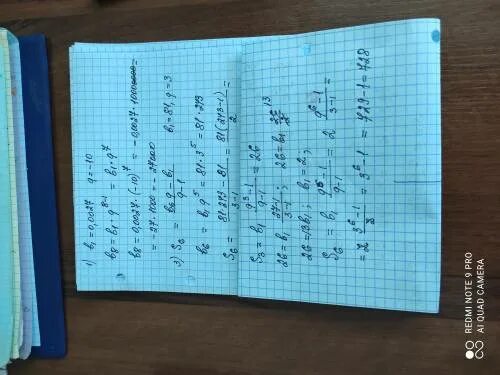 1) b₁ = 0,0027   q = -10
b₈ = b₁ · q⁸⁻¹ = b₁ · q⁷
b₈ = 0,0027 · (-10)⁷ = -0,0027 · 1000
= -27 · 1000 = -27000
3) S₆ = (b₆q - b₁)/(q - 1)   b₁ = 81, q = 3
b₆ = b₁q⁵ = 81 · 3⁵ = 81 · 243
S₆ = (81 · 243 - 81)/(3 - 1) = 81(243 - 1)/2 =
S₃ = b₁ (q³ - 1)/(q - 1) = 26
26 = b₁ (27 - 1)/(3 - 1); 26 = b₁ 26/2 13
26 = 13b₁; b₁ = 2;
S₆ = b₁ (q⁶ - 1)/(q - 1) = 2 (q⁶ - 1)/(3 - 1) =
= 2 (3⁶ - 1)/2 = 3⁶ - 1 = 729 - 1 = 728
REDMI NOTE 9 PRO
AI QUAD CAMERA